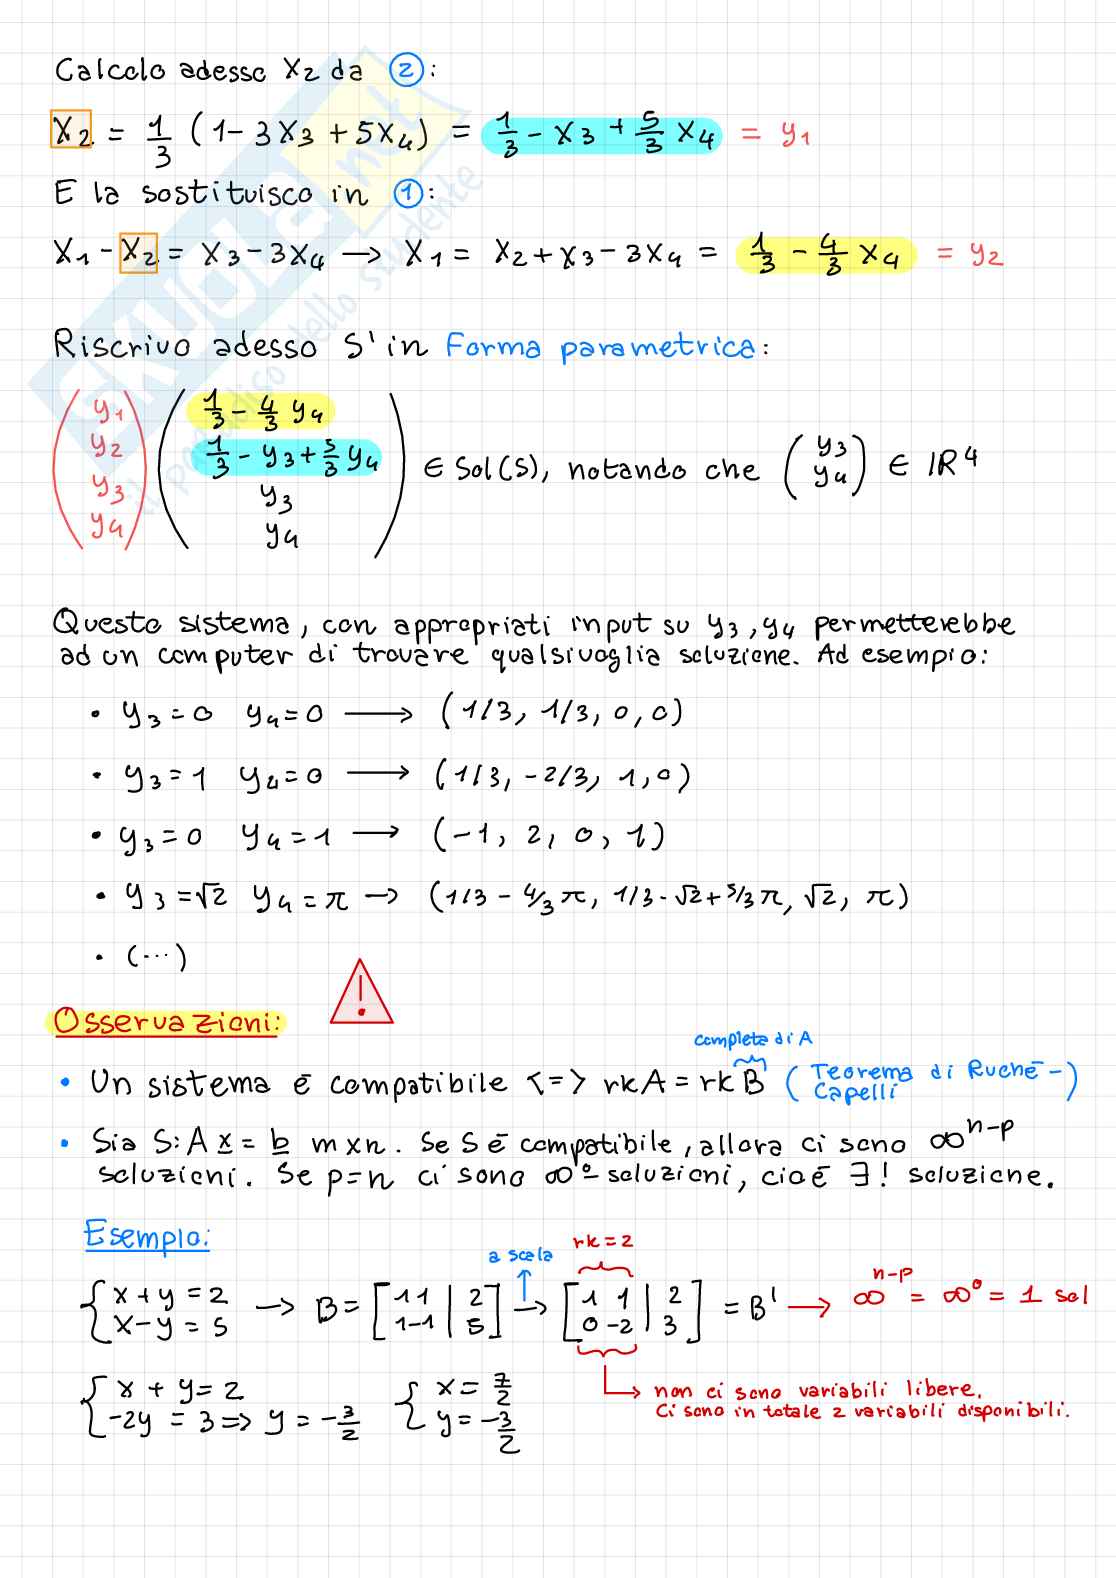 Calcolo adesso X2 da ②:
X2 = 1/3 (1-3X3+5X4) = 1/3 - X3 + 5/3 X4 = y1
E la sostituisco in ①:
X1 - X2 = X3 - 3X4 → X1 = X2 + X3 - 3X4 = 1/3 - 4/3 X4 = y2
Riscrivo adesso S' in Forma parametrica:
(y1 y2 y3 y4) (1/3 - 4/3 y4, 1/3 - y3 + 5/3 y4, y3, y4) ∈ Sol(S), notando che (y3 y4) ∈ IR⁴
Questo sistema, con appropriati input su y3, y4 permetterebbe
ad un computer di trovare qualsivoglia soluzione. Ad esempio:
• y3 = 0 y4 = 0 → (1/3, 1/3, 0, 0)
• y3 = 1 y4 = 0 → (1/3, -2/3, 1, 0)
• y3 = 0 y4 = 1 → (-1, 2, 0, 1)
• y3 = √2 y4 = π → (1/3 - 4/3 π, 1/3 - √2 + 5/3 π, √2, π)
• (...)
Osservazioni: !
completa di A
• Un sistema è compatibile <=> rkA = rkB (Teorema di Ruché-
Capelli)
• Sia S: Ax = b m×n. Se S è compatibile, allora ci sono ∞^n-p
soluzioni. Se p=n ci sono ∞⁰ soluzioni, cioè ∃! soluzione.
Esempio:
a scala
rk = 2
{x + y = 2 x - y = 5 → B = [1 1 | 2 1 -1 | 5] → [1 1 | 2 0 -2 | 3] = B' → ∞^n-p = ∞⁰ = 1 sol
{x + y = 2 -2y = 3 => y = -3/2 {x = 7/2 y = -3/2
non ci sono variabili libere.
Ci sono in totale 2 variabili disponibili.
SKUOLA.net
il paradiso dello studente